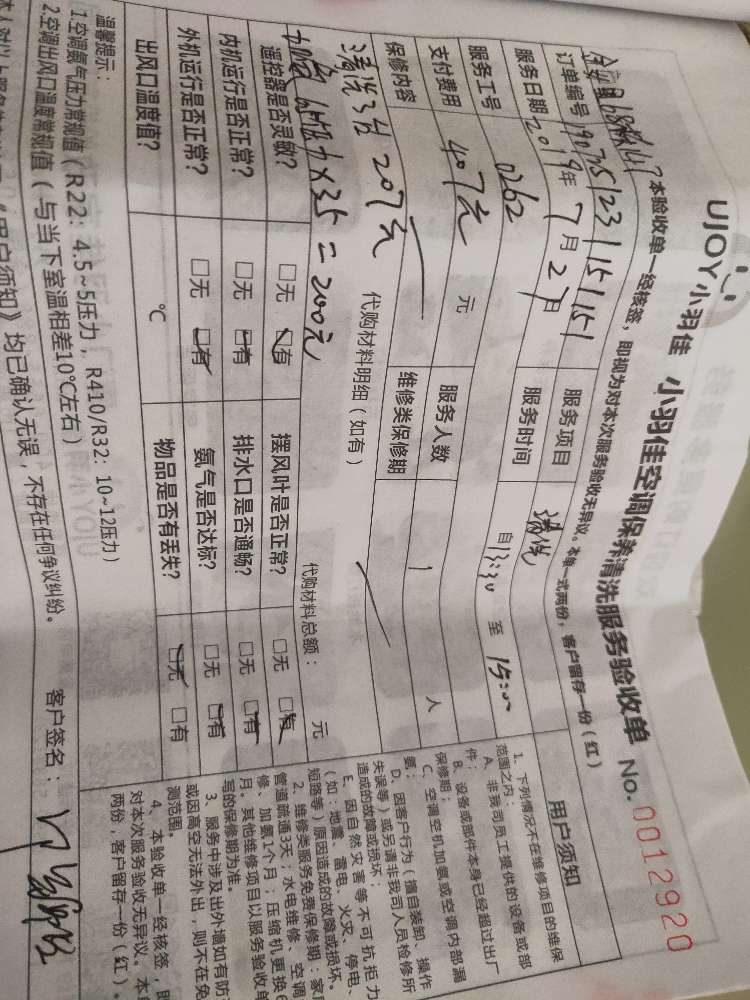 UJOY小羽佳 小羽佳空调保养清洗服务验收单 No. 0012920
本验收单一经核签，即视为对本次服务验收无异议。本单一式两份，客户留存一份（红）
订单编号 190725123115151
服务项目 清洗
服务日期 2019年7月27日
服务时间 自13:30 至 15:00
服务工号 0262
支付费用 407元 元
服务人数 1 人
保修内容
维修类保修期
清洗3台 207元
代购材料明细（如有）
代购材料总额： 元
加氨 力×35=200元
遥控器是否灵敏？ □无 □有
摆风叶是否正常？ □无 □有
内机运行是否正常？ □无 □有
排水口是否通畅？ □无 □有
外机运行是否正常？ □无 □有
氨气是否达标？ □无 □有
出风口温度值？ ℃
物品是否有丢失？ □无 □有
温馨提示：
1.空调氨气压力常规值（R22：4.5~5压力，R410/R32：10~12压力）
2.空调出风口温度常规值（与当下室温相差10℃左右）
用户须知》均已确认无误，不存在任何争议纠纷。
客户签名：
用户须知
1、下列情况不在维修项目的维保
范围之内：
A、非我司员工提供的设备或部
件；
B、设备或部件本身已经超过出厂
保修期；
C、空调空机加氨或空调内部漏
氨；
D、因客户行为（擅自装卸、操作
失误等）或另请非我司人员检修所
造成的故障或损坏；
E、因自然灾害等不可抗拒力
（如：地震、雷电、火灾、停电、
短路等）原因造成的故障或损坏。
2、维修类服务免费保修期：家
管道疏通3天；水电维修、空调
修、加氨1个月；压缩机更换6
月。其他维修项目以服务验收单
写的保修期为准。
3、服务中涉及出外墙如有防
或因高空无法外出，则不在免
测范围。
4、本验收单一经核签，即
对本次服务验收无异议。本单
两份，客户留存一份（红）。